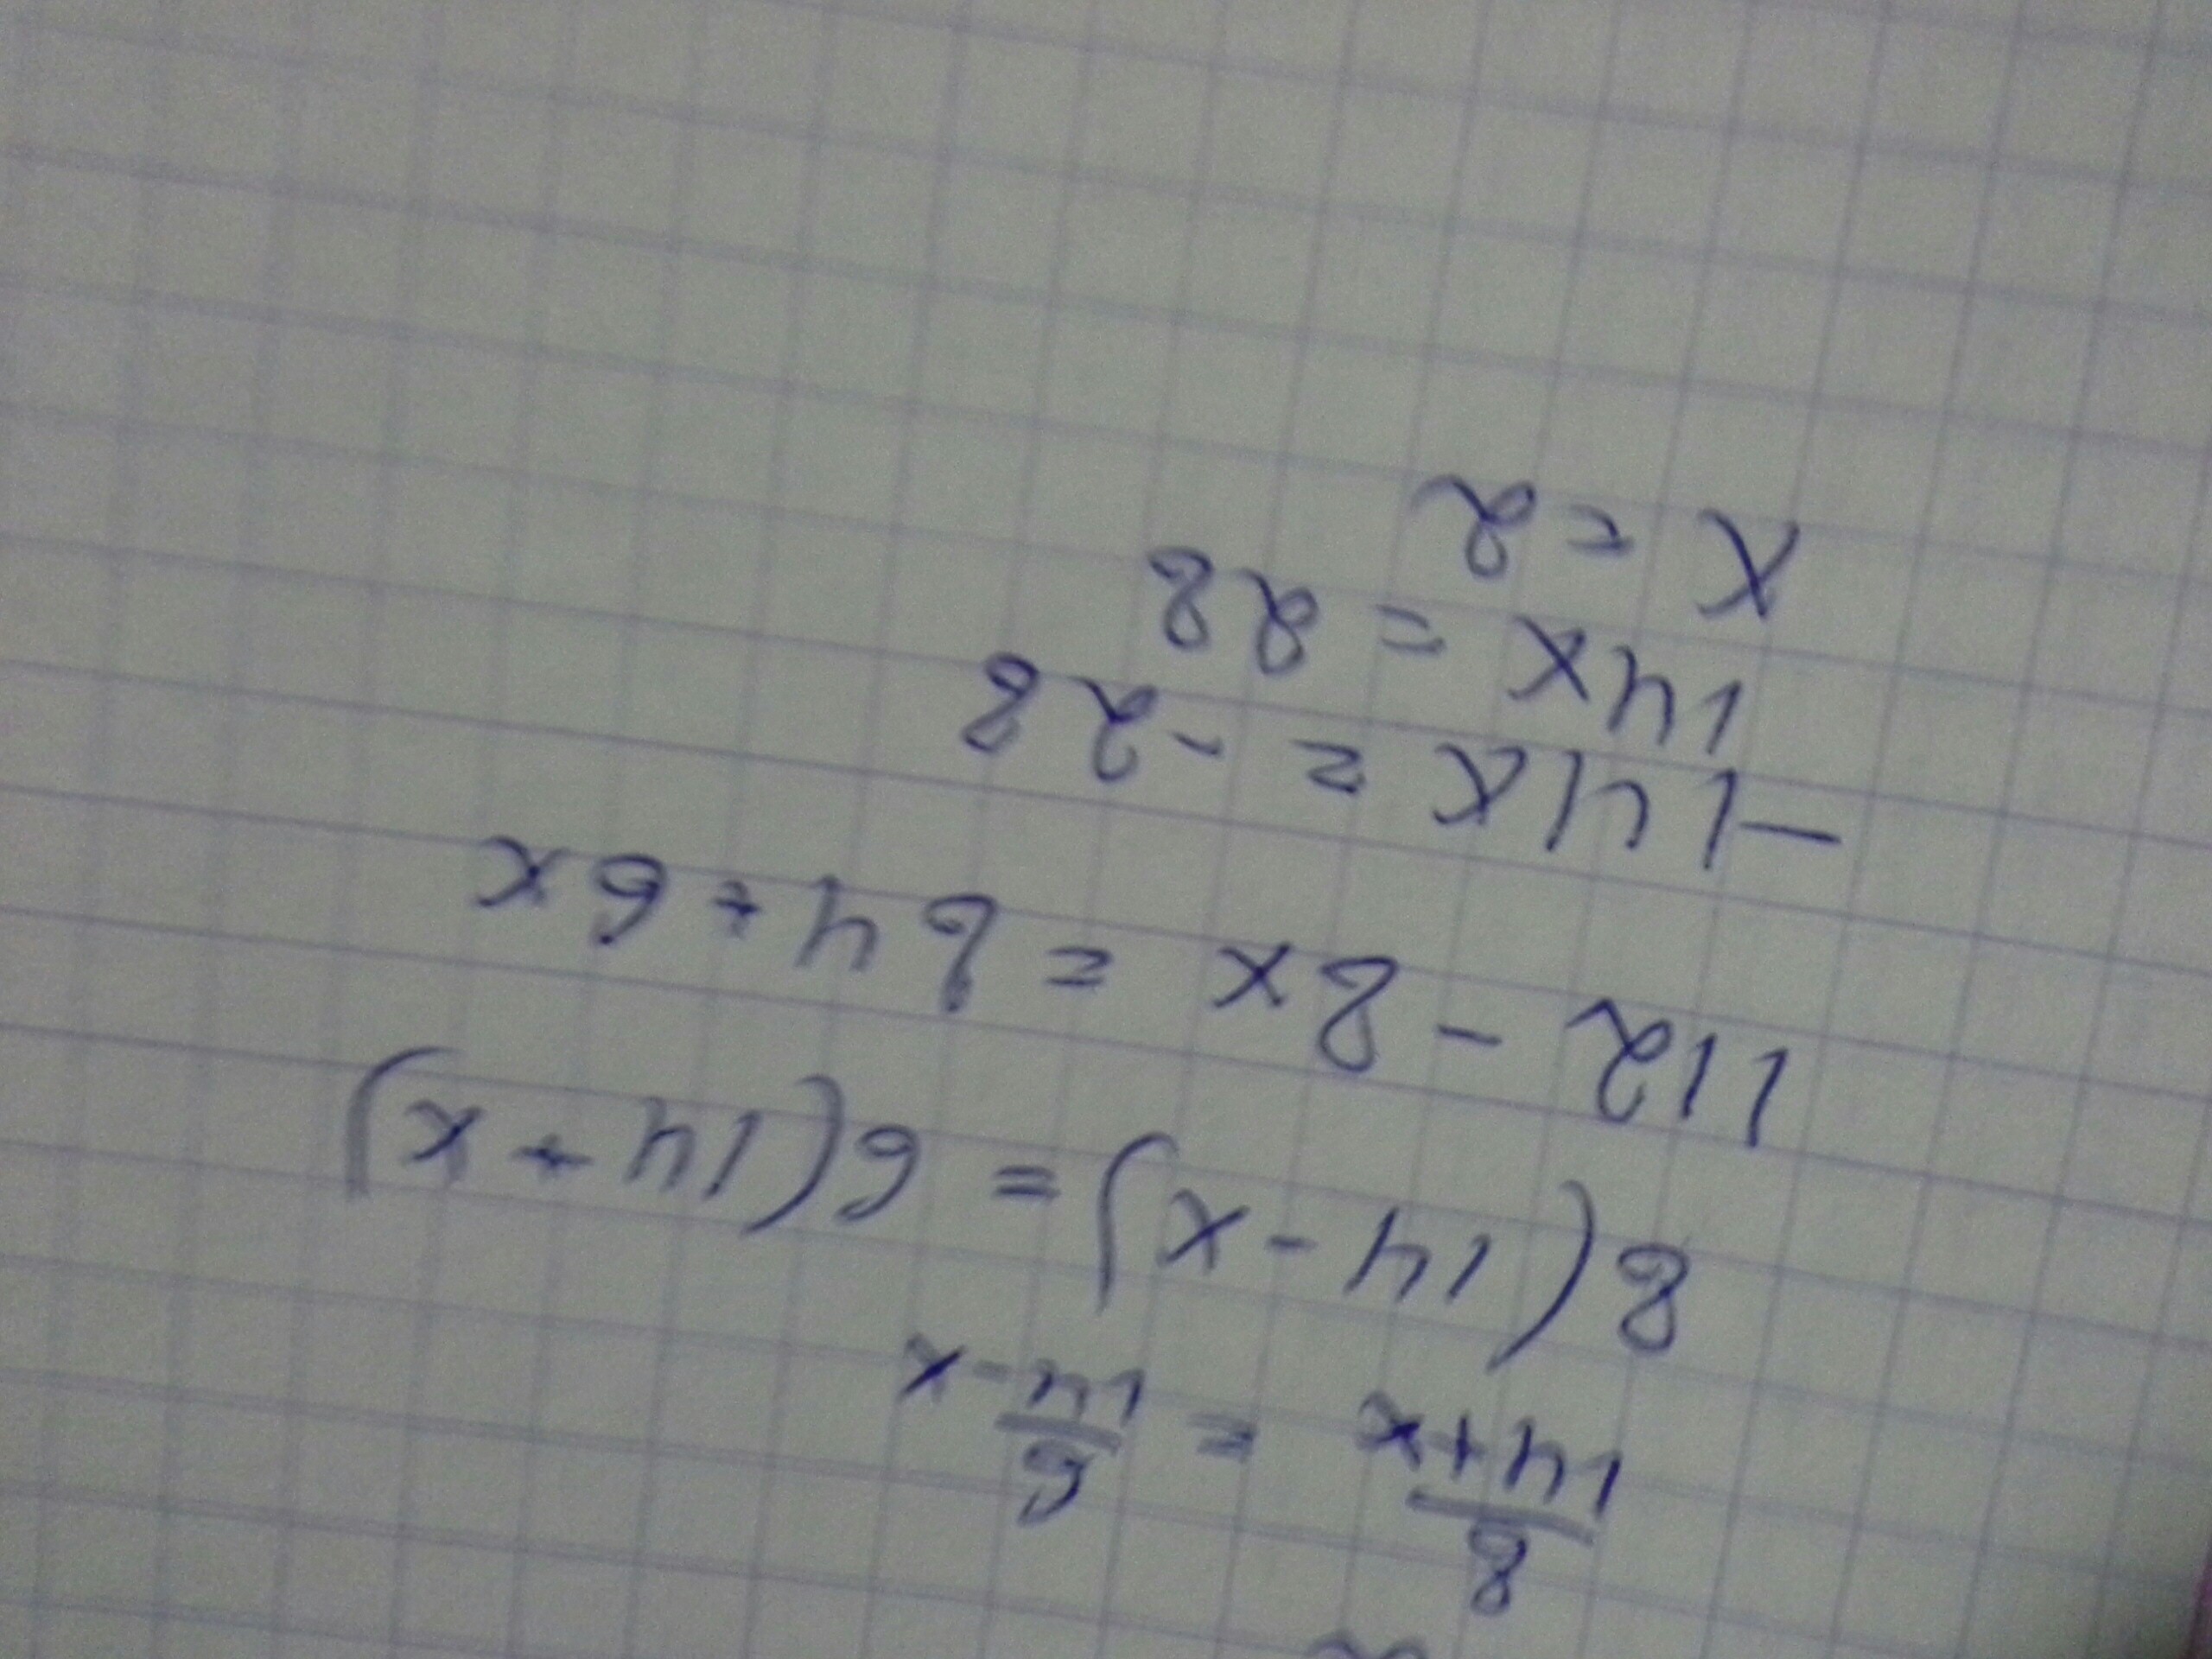 8/14+x = 6/14-x
8(14-x) = 6(14+x)
112 - 8x = 84+6x
-14x = -28
14x = 28
x = 2